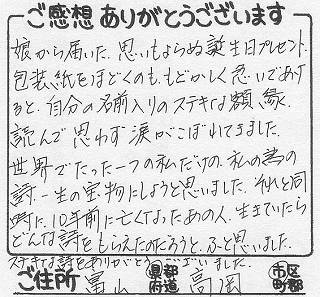 ご感想 ありがとうございます
娘から届いた、思いもよらぬ誕生日プレゼント。
包装紙をほどくのも、もどかしく急いであけ
ると、自分の名前入りのステキな額縁。
読んで思わず涙がこぼれてきました。
世界でたった一つの私だけの、私の為の
詩、一生の宝物にしようと思いました。それと同
時に、10年前に亡くなったあの人、生きていたら
どんな詩をもらえたのだろうと、ふと思いました。
ステキな詩をありがとうございました。
ご住所 富山 県都府道 高岡 市区町郡